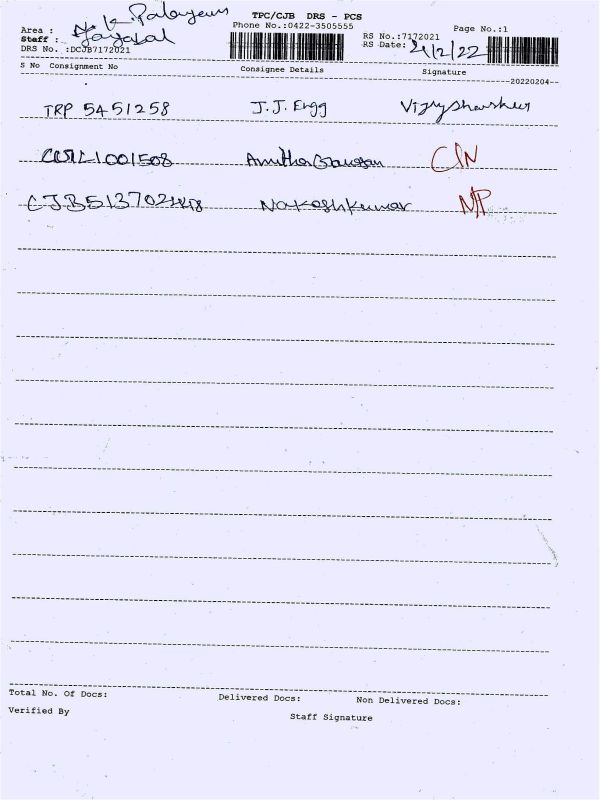 TPC/CJB DRS - PCS
Area : K. Palayam
Phone No.:0422-3505555
Page No.:1
Staff :
RS No.:7172021
DRS No. :DCJB7172021
RS Date: 4/2/22
S No Consignment No Consignee Details Signature
20220204
TRP 5451258 J.J. Engg
1001508 C/N
CJB513702 Nakeshkumar N/P
Total No. Of Docs: Delivered Docs: Non Delivered Docs:
Verified By Staff Signature